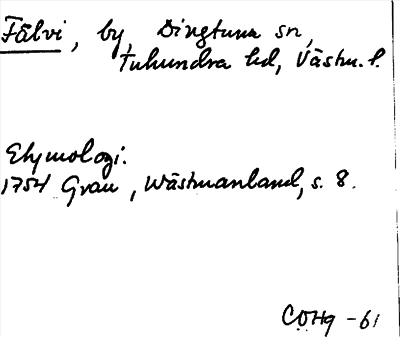 Fälvi, by, Dingtuna sn,
Tuhundra hd, Västm. l.
Etymologi.
1754 Grau, Wästmanland, s. 8.
COHg -61